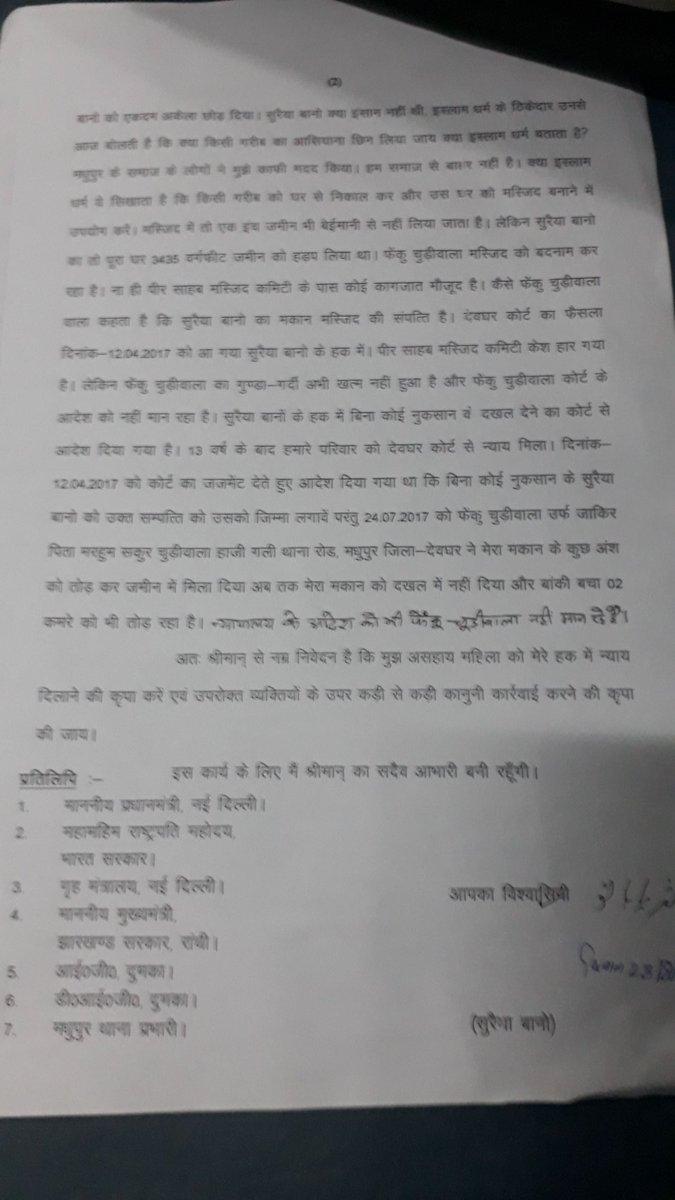 (2)
बानो को एकदम अकेला छोड़ दिया। सुरैया बानो क्या इंसान नहीं थी, इस्लाम धर्म के ठिकेदार उनसे
आज बोलती है कि क्या किसी गरीब का आसियाना छिन लिया जाय क्या इस्लाम धर्म बताता है?
मधुपुर के समाज के लोगों ने मुझे काफी मदद किया। हम समाज से बाहर नहीं है। क्या इस्लाम
धर्म ये सिखाता है कि किसी गरीब को घर से निकाल कर और उस घर को मस्जिद बनाने में
उपयोग करें। मस्जिद में तो एक इंच जमीन भी बेईमानी से नहीं लिया जाता है। लेकिन सुरैया बानो
का तो पूरा घर 3435 वर्गफीट जमीन को हड़प लिया था। फेंकु चुड़ीवाला मस्जिद को बदनाम कर
रहा है। ना ही पीर साहब मस्जिद कमिटी के पास कोई कागजात मौजूद है। कैसे फेंकु चुड़ीवाला
वाला कहता है कि सुरैया बानो का मकान मस्जिद की संपत्ति है। देवघर कोर्ट का फैसला
दिनांक–12.04.2017 को आ गया सुरैया बानो के हक में। पीर साहब मस्जिद कमिटी केश हार गया
है। लेकिन फेंकु चुड़ीवाला का गुण्डा–गर्दी अभी खत्म नहीं हुआ है और फेंकु चुड़ीवाला कोर्ट के
आदेश को नहीं मान रहा है। सुरैया बानों के हक में बिना कोई नुकसान के दखल देने का कोर्ट से
आदेश दिया गया है। 13 वर्ष के बाद हमारे परिवार को देवघर कोर्ट से न्याय मिला। दिनांक–
12.04.2017 को कोर्ट का जजमेंट देते हुए आदेश दिया गया था कि बिना कोई नुकसान के सुरैया
बानो को उक्त सम्पत्ति को उसको जिम्मा लगावें परंतु 24.07.2017 को फेंकु चुड़ीवाला उर्फ जाकिर
पिता मरहुम सकुर चुड़ीवाला हाजी गली थाना रोड, मधुपुर जिला–देवघर ने मेरा मकान के कुछ अंश
को तोड़ कर जमीन में मिला दिया अब तक मेरा मकान को दखल में नहीं दिया और बांकी बचा 02
कमरे को भी तोड़ रहा है। न्यायालय के आदेश को भी फेंकू चूड़ीवाला नही मान रहे है।
अतः श्रीमान् से नम्र निवेदन है कि मुझ असहाय महिला को मेरे हक में न्याय
दिलाने की कृपा करें एवं उपरोक्त व्यक्तियों के उपर कड़ी से कड़ी कानुनी कार्रवाई करने की कृपा
की जाय।
इस कार्य के लिए मैं श्रीमान् का सदैव आभारी बनी रहूँगी।
प्रतिलिपि :–
1. माननीय प्रधानमंत्री, नई दिल्ली।
2. महामहिम राष्ट्रपति महोदय,
भारत सरकार।
3. गृह मंत्रालय, नई दिल्ली।
4. माननीय मुख्यमंत्री,
झारखण्ड सरकार, रांची।
5. आई०जी०, दुमका।
6. डी०आई०जी०, दुमका।
7. मधुपुर थाना प्रभारी।
आपका विश्वासिनी
(सुरैया बानो)